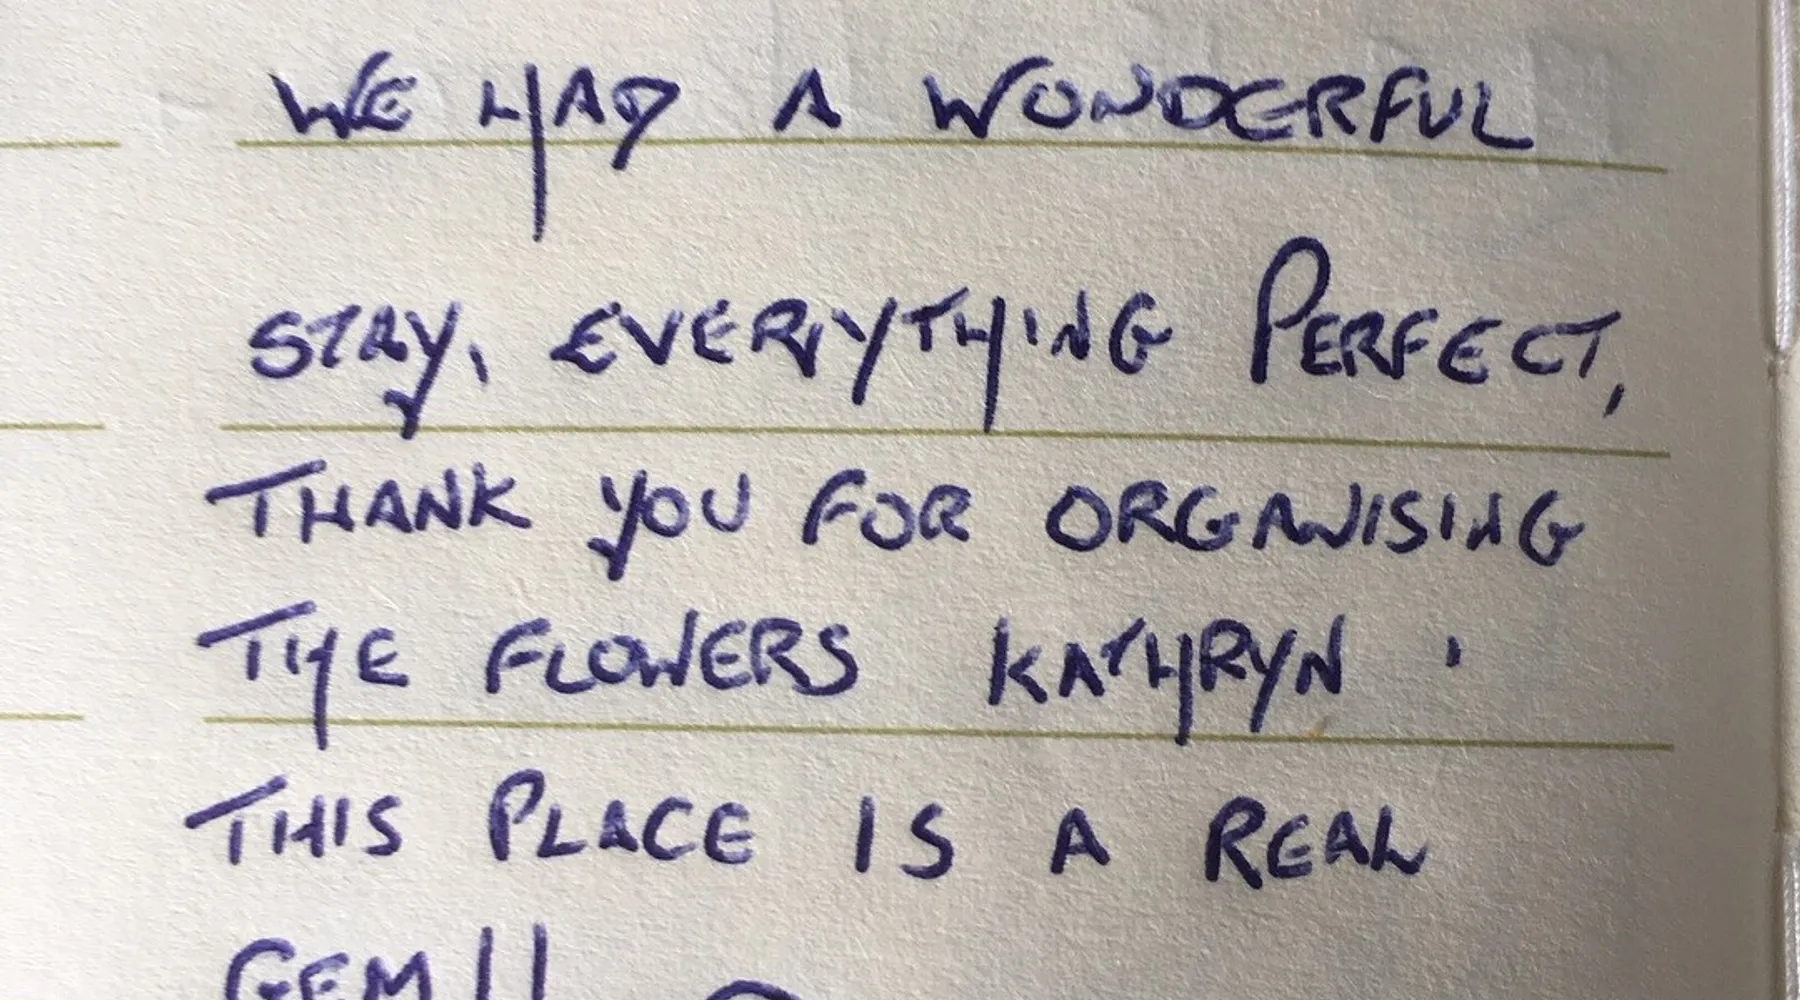 WE HAD A WONDERFUL
STAY, EVERYTHING PERFECT,
THANK YOU FOR ORGANISING
THE FLOWERS KATHRYN '
THIS PLACE IS A REAL
GEM!!